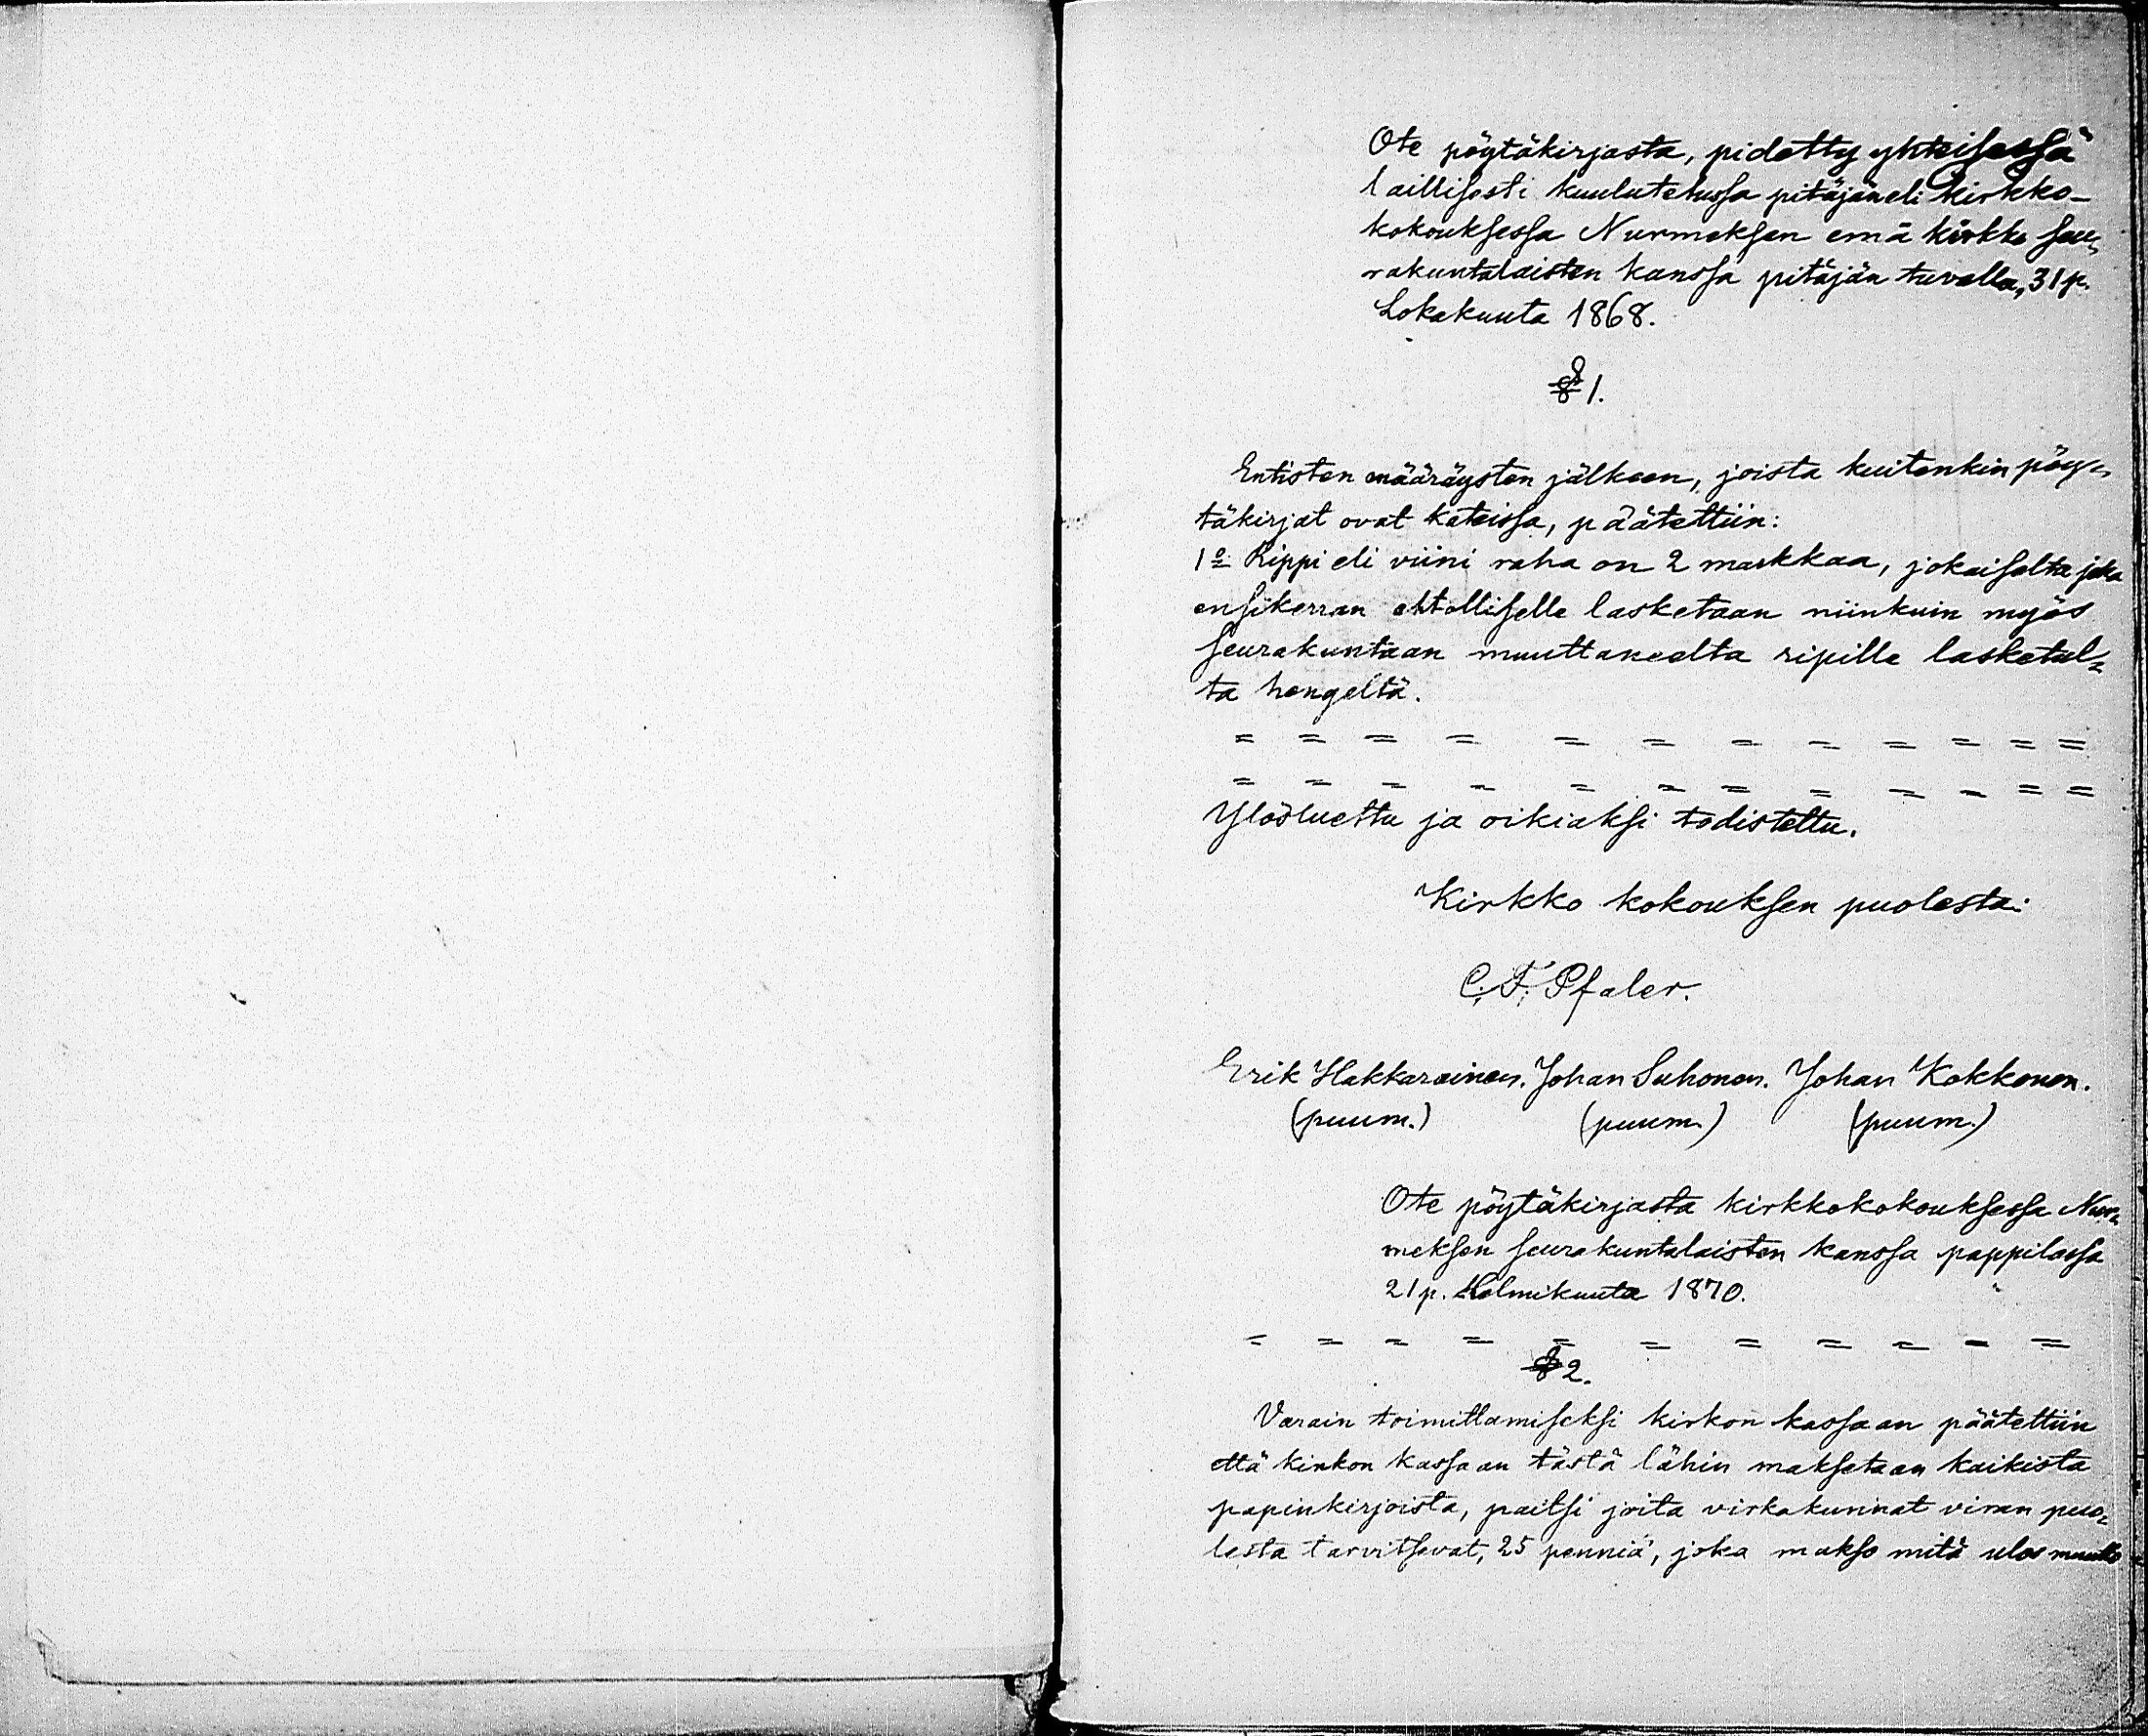 Ote pöytäkirjasta, pidetty yhteisessä
laillisesti kuulutetussa pitäjän eli kirkko-
kokouksessa Nurmeksen emä kirkko seu-
rakuntalaisten kanssa pitäjän tuvalla, 31 p.
Lokakuuta 1868.
§ 1.
Entisten määräysten jälkeen, joista kuitenkin pöy-
täkirjat ovat kateissa, päätettiin:
1o Rippi eli viini raha on 2 markkaa, jokaiselta joka
ensikerran ehtolliselle lasketaan niinkuin myös
seurakuntaan muuttaneelta ripille lasketul-
ta hengeltä.
= = = = = = = = = = = =
= = = = = = = = = = = =
Ylösluettu ja oikiaksi todistettu.
Kirkko kokouksen puolesta:
C. F. Pfaler.
Erik Hakkarainen. Johan Suhonen. Johan Kokkonen.
(puum.) (puum.) (puum.)
Ote pöytäkirjasta kirkkokokouksessa Nur-
meksen seurakuntalaisten kanssa pappilassa
21 p. Helmikuuta 1870.
= = = = = = = = = = =
§ 2.
Varain toimittamiseksi kirkon kassaan päätettiin
että kirkon kassaan tästä lähin maksetaan kaikista
papinkirjoista, paitsi joita virkakunnat viran puo-
lesta tarvitsevat, 25 penniä, joka makso mitä ulos muutto